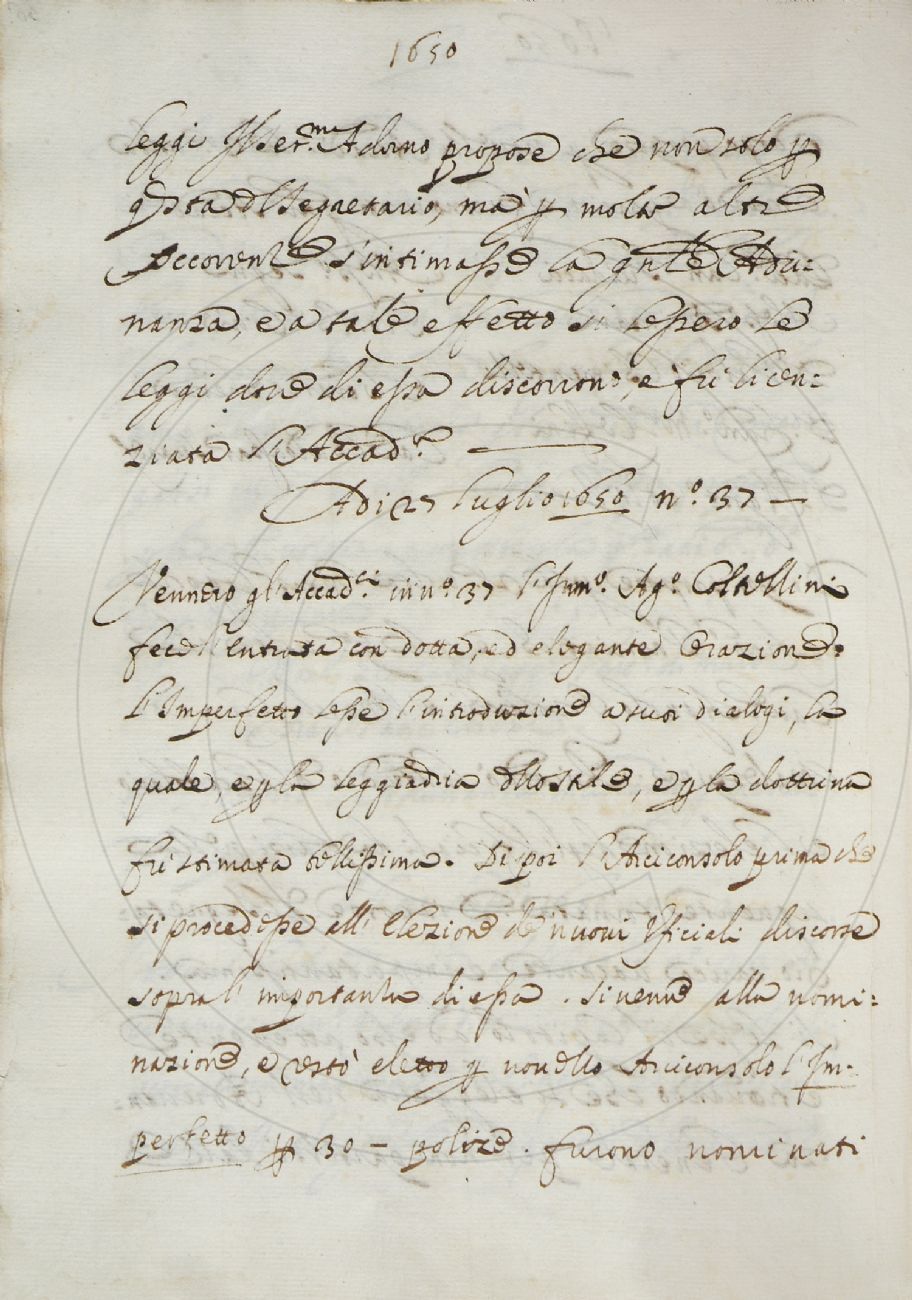 1650
leggi Il Ser.mo Adorno propose che non solo p
qsta dl Segretario, ma p molte altre
occorenze s'intimasse la gnle Adu:
nanza, e a tale effetto si lessero le
leggi dove di essa discorrono, e fù licen:
ziata l'Accad.a
Adi 27 luglio 1650 n.o 37 —
Vennero gl'Accad.ci in n.o 37 l' Ag.o Coltellini
fece l'entrata con dotta, ed elegante Orazione.
l'Imperfetto lesse l'introduzione a suoi dialogi, la
quale, e p la leggiadria dllo stile, e p la dottrina
fù stimata bellissima. Di poi l'Arciconsolo prima che
si procedesse all'Elezione de' nuovi Ufficiali discorse
sopra l'importanza di essa. si venne alla nomi:
nazione, e restò eletto p novello Arciconsolo l'Im-
perfetto p 30 – polize. furono nominati